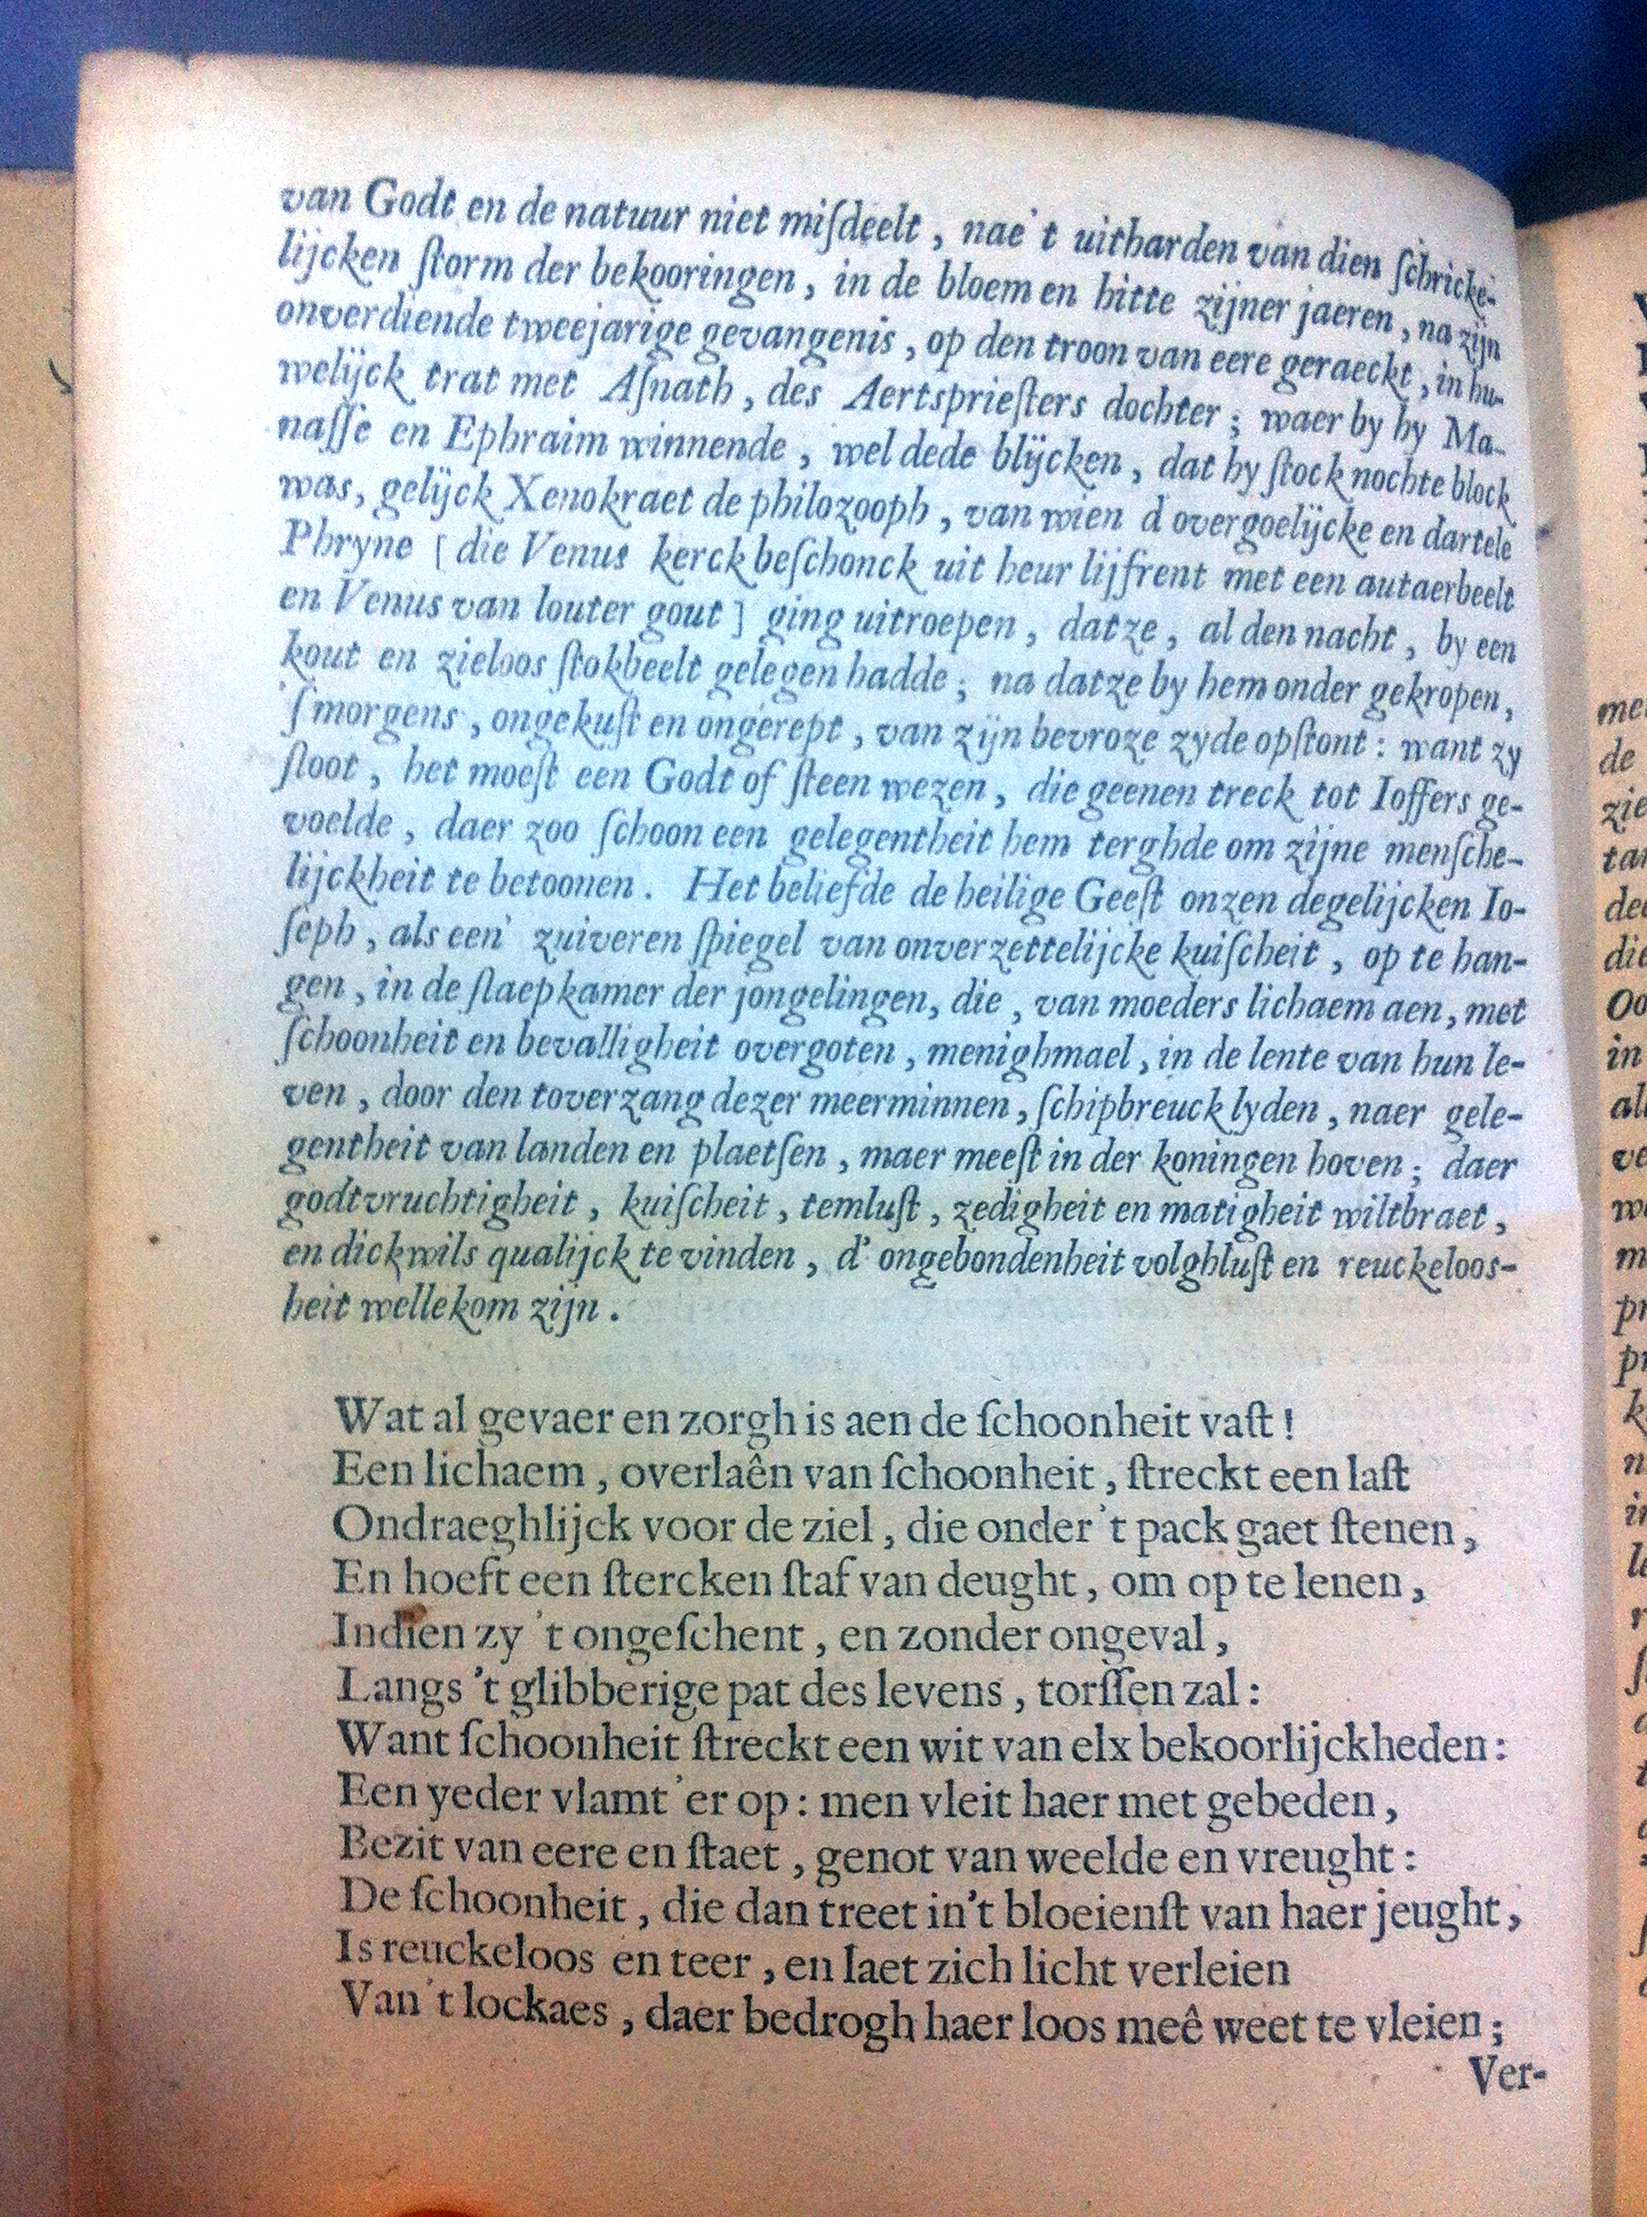 van Godt en de natuur niet miſdeelt, nae't uitharden van dien ſchricke-
lijcken ſtorm der bekooringen, in de bloem en hitte zijner jaeren, na zijn
onverdiende tweejarige gevangenis, op den troon van eere geraeckt, in hu-
welijck trat met Aſnath, des Aertsprieſters dochter; waer by hy Ma-
naſſe en Ephraim winnende, wel dede blijcken, dat hy ſtock nochte block
was, gelijck Xenokraet de philozooph, van wien d overgoelijcke en dartele
Phryne [ die Venus kerck beſchonck uit heur lijfrent met een autaerbeelt
en Venus van louter gout ] ging uitroepen, datze, al den nacht, by een
kout en zieloos ſtokbeelt gelegen hadde; na datze by hem onder gekropen,
'ſmorgens, ongekuſt en ongerept, van zijn bevroze zyde opſtont: want zy
ſloot, het moeſt een Godt of ſteen wezen, die geenen treck tot Ioffers ge-
voelde, daer zoo ſchoon een gelegentheit hem terghde om zijne menſche-
lijckheit te betoonen. Het beliefde de heilige Geeſt onzen degelijcken Io-
ſeph, als een' zuiveren ſpiegel van onverzettelijcke kuiſcheit, op te han-
gen, in de ſlaepkamer der jongelingen, die, van moeders lichaem aen, met
ſchoonheit en bevalligheit overgoten, menighmael, in de lente van hun le-
ven, door den toverzang dezer meerminnen, ſchipbreuck lyden, naer gele-
gentheit van landen en plaetſen, maer meeſt in der koningen hoven; daer
godtvruchtigheit, kuiſcheit, temluſt, zedigheit en matigheit wiltbraet,
en dickwils qualijck te vinden, d' ongebondenheit volghluſt en reuckeloos-
heit wellekom zijn.
Wat al gevaer en zorgh is aen de ſchoonheit vaſt!
Een lichaem, overlaên van ſchoonheit, ſtreckt een laſt
Ondraeghlijck voor de ziel, die onder 't pack gaet ſtenen,
En hoeft een ſtercken ſtaf van deught, om op te lenen,
Indien zy 't ongeſchent, en zonder ongeval,
Langs 't glibberige pat des levens, torſſen zal:
Want ſchoonheit ſtreckt een wit van elx bekoorlijckheden:
Een yeder vlamt 'er op: men vleit haer met gebeden,
Bezit van eere en ſtaet, genot van weelde en vreught:
De ſchoonheit, die dan treet in't bloeienſt van haer jeught,
Is reuckeloos en teer, en laet zich licht verleien
Van 't lockaes, daer bedrogh haer loos meê weet te vleien;
Ver-